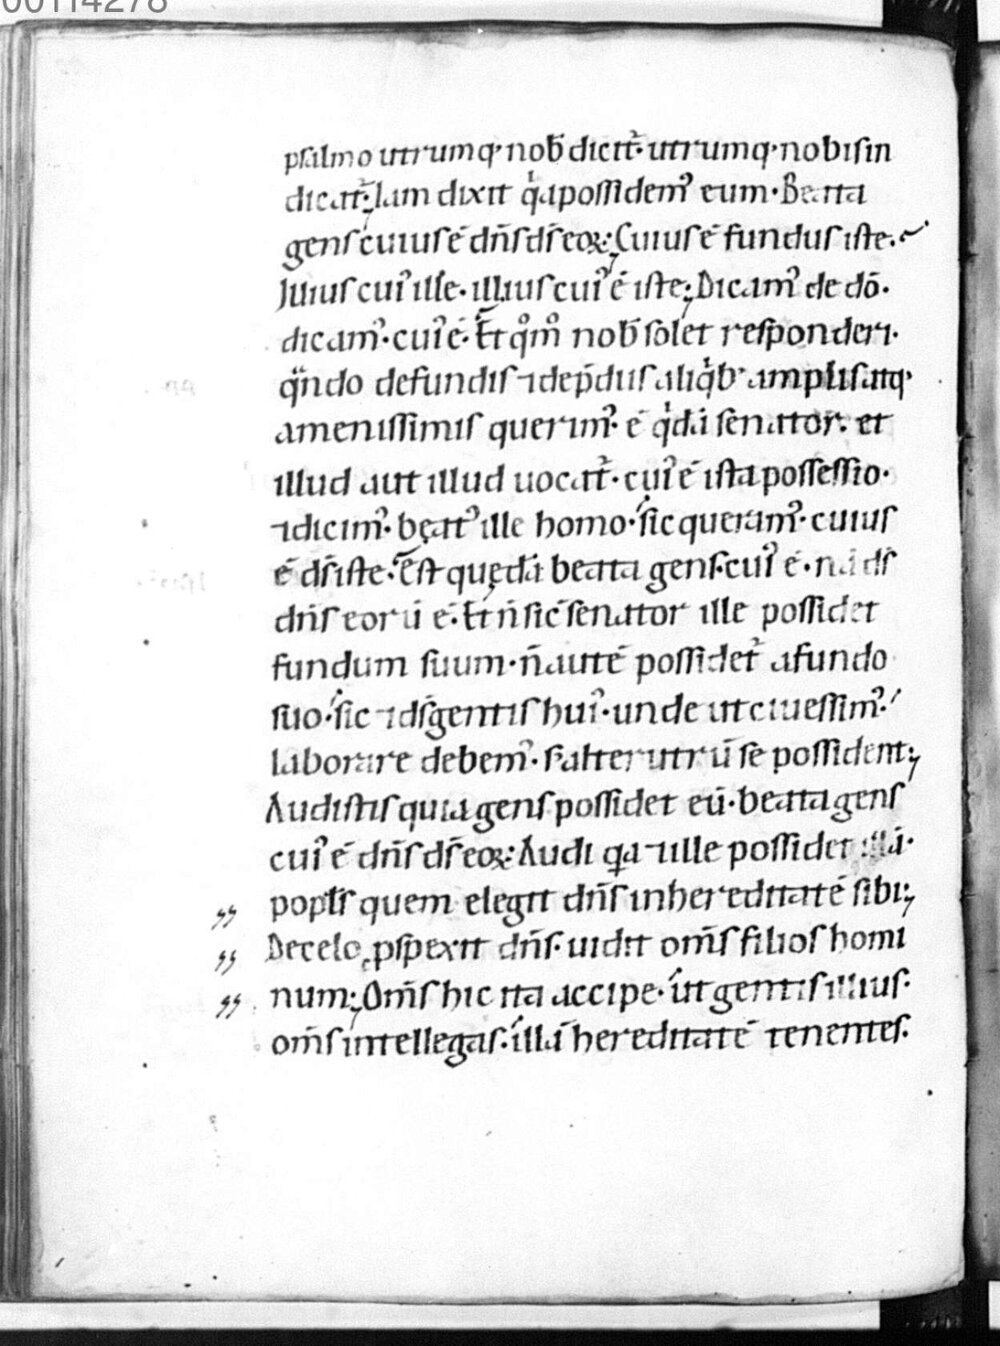 00114278
psalmo utrumq· nob̄ dicit̃· utrumq· nobis in
dicat̃; Iam dixit qͥa possidemꝰ eum· Beata
gens cuius ē dn̄s ds̄ eoꝝ; Cuius ē fundus iste.
Illius cuiꝰ ille· illius cuiꝰ ē iste; Dicamꝰ de dō·
dicamꝰ· cuiꝰ ē· Et qͦmͦ nob̄ solet responderi·
qn̄do de fundis ⁊ de p̄dus aliqͥb amplis atq·
amenissimis querimꝰ· ē qͥdā senator· et
illud aut illud uocat̃· cuiꝰ ē ista possessio·
⁊ dicimꝰ· beatꝰ ille homo· sic queramꝰ· cuius
ē ds̄ iste· Est quędā beata gens· cuiꝰ ē· nā ds̄
dn̄s eorū ē· Et n̄ sic senator ille possidet
fundum suum· n̄ autē possidet̃ a fundo
suo· sic ⁊ ds̄ gentis huiꝰ· unde ut ei uessimꝰ·
laborare debemꝰ· s· alterutrū se possident;
Audistis quia gens possidet eū· beata gens
cuiꝰ ē dn̄s ds̄ eoꝝ; Audi qa ⁊ ille possidet illā·
popl̄s quem elegit dn̄s in hereditatē sibi;
De celo ꝓspexit dn̄s· uidit om̄s filios homi
num; Om̄s hic ita accipe· ut gentis illius·
om̄s intellegas· illā hereditatē tenentes·